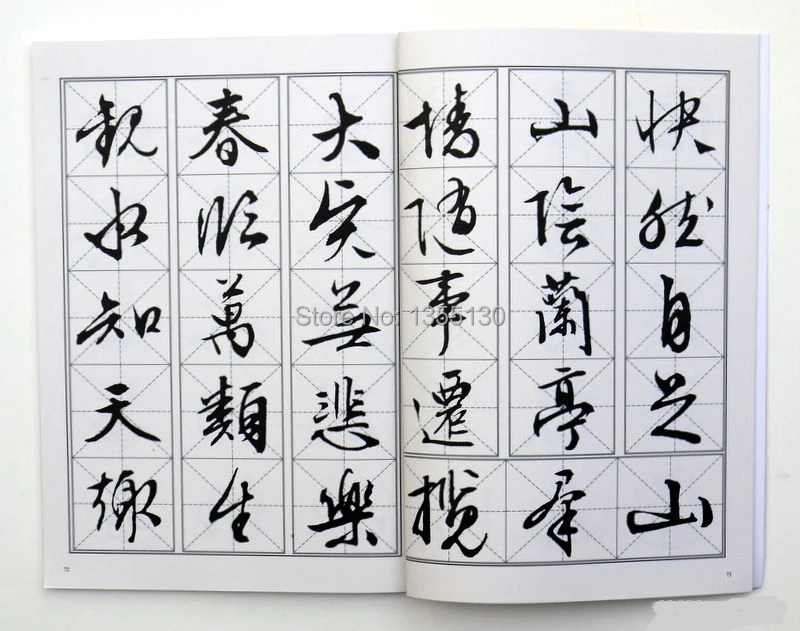 快然自足
山陰蘭亭
情隨事遷
攬羣山
大矣無悲樂
春臨萬類生
觀水知天趣
Store No: 1355130
72
73